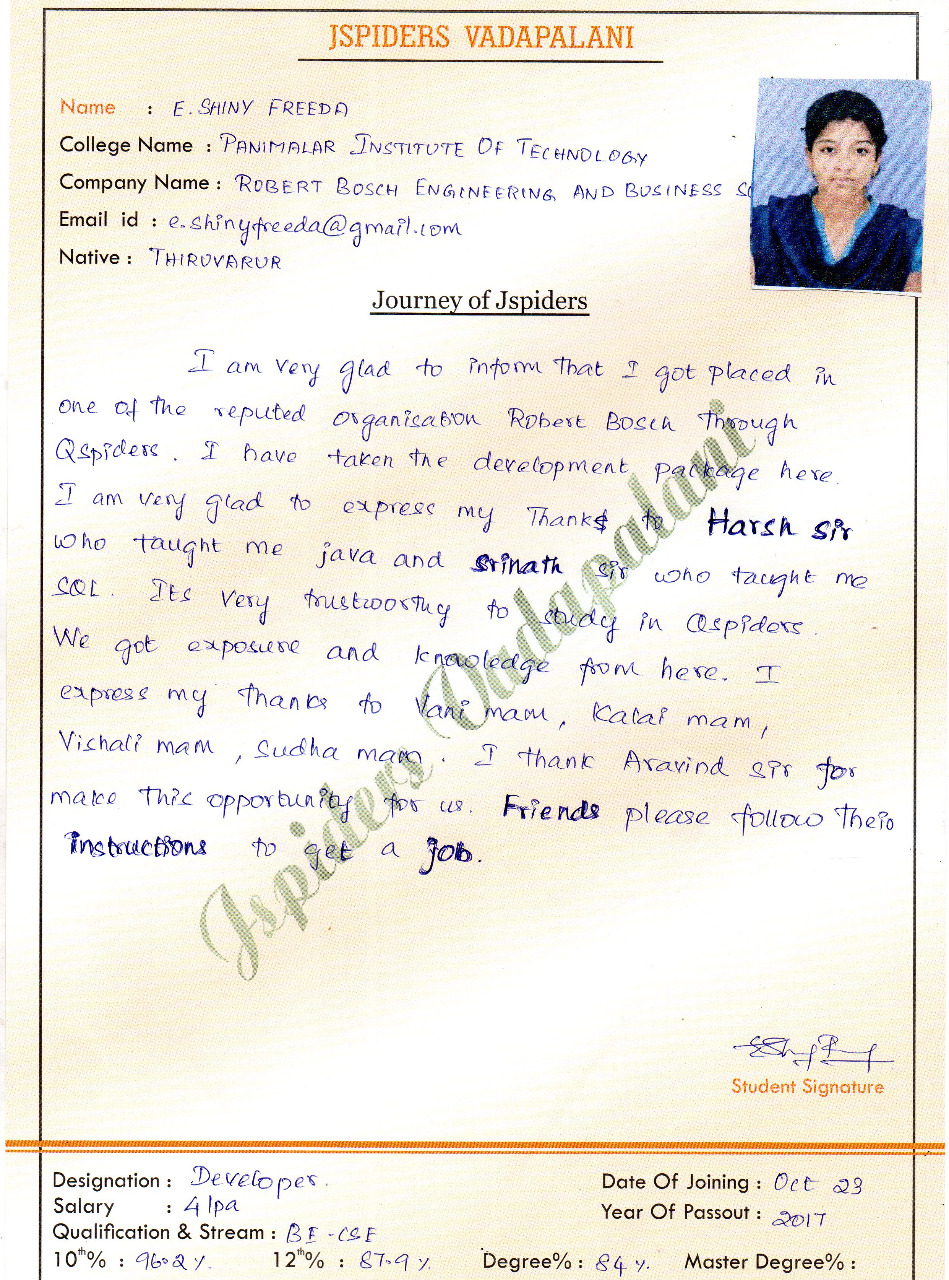 JSPIDERS VADAPALANI
Name : E. SHINY FREEDA
College Name : PANIMALAR INSTITUTE OF TECHNOLOGY
Company Name : ROBERT BOSCH ENGINEERING AND BUSINESS SO
Email id : e.shinyfreeda@gmail.com
Native : THIRUVARUR
Journey of Jspiders
I am very glad to inform that I got placed in
one of the reputed organisation Robert Bosch through
Qspiders. I have taken the development package here.
I am very glad to express my Thanks to Harsh sir
who taught me java and srinath sir who taught me
SQL. Its very trustworthy to study in Qspiders.
We got exposure and knowledge from here. I
express my thanks to Vani mam, Kalai mam,
Vishali mam, Sudha mam. I thank Aravind sir for
make this opportunity for us. Friends please follow their
instructions to get a job.
Jspiders Vadapalani
Student Signature
Designation : Developer.
Date Of Joining : Oct 23
Salary : 4 lpa
Year Of Passout : 2017
Qualification & Stream : BE - CSE
10th% : 96.2 %. 12th% : 87.9 %. Degree% : 84 %. Master Degree% :